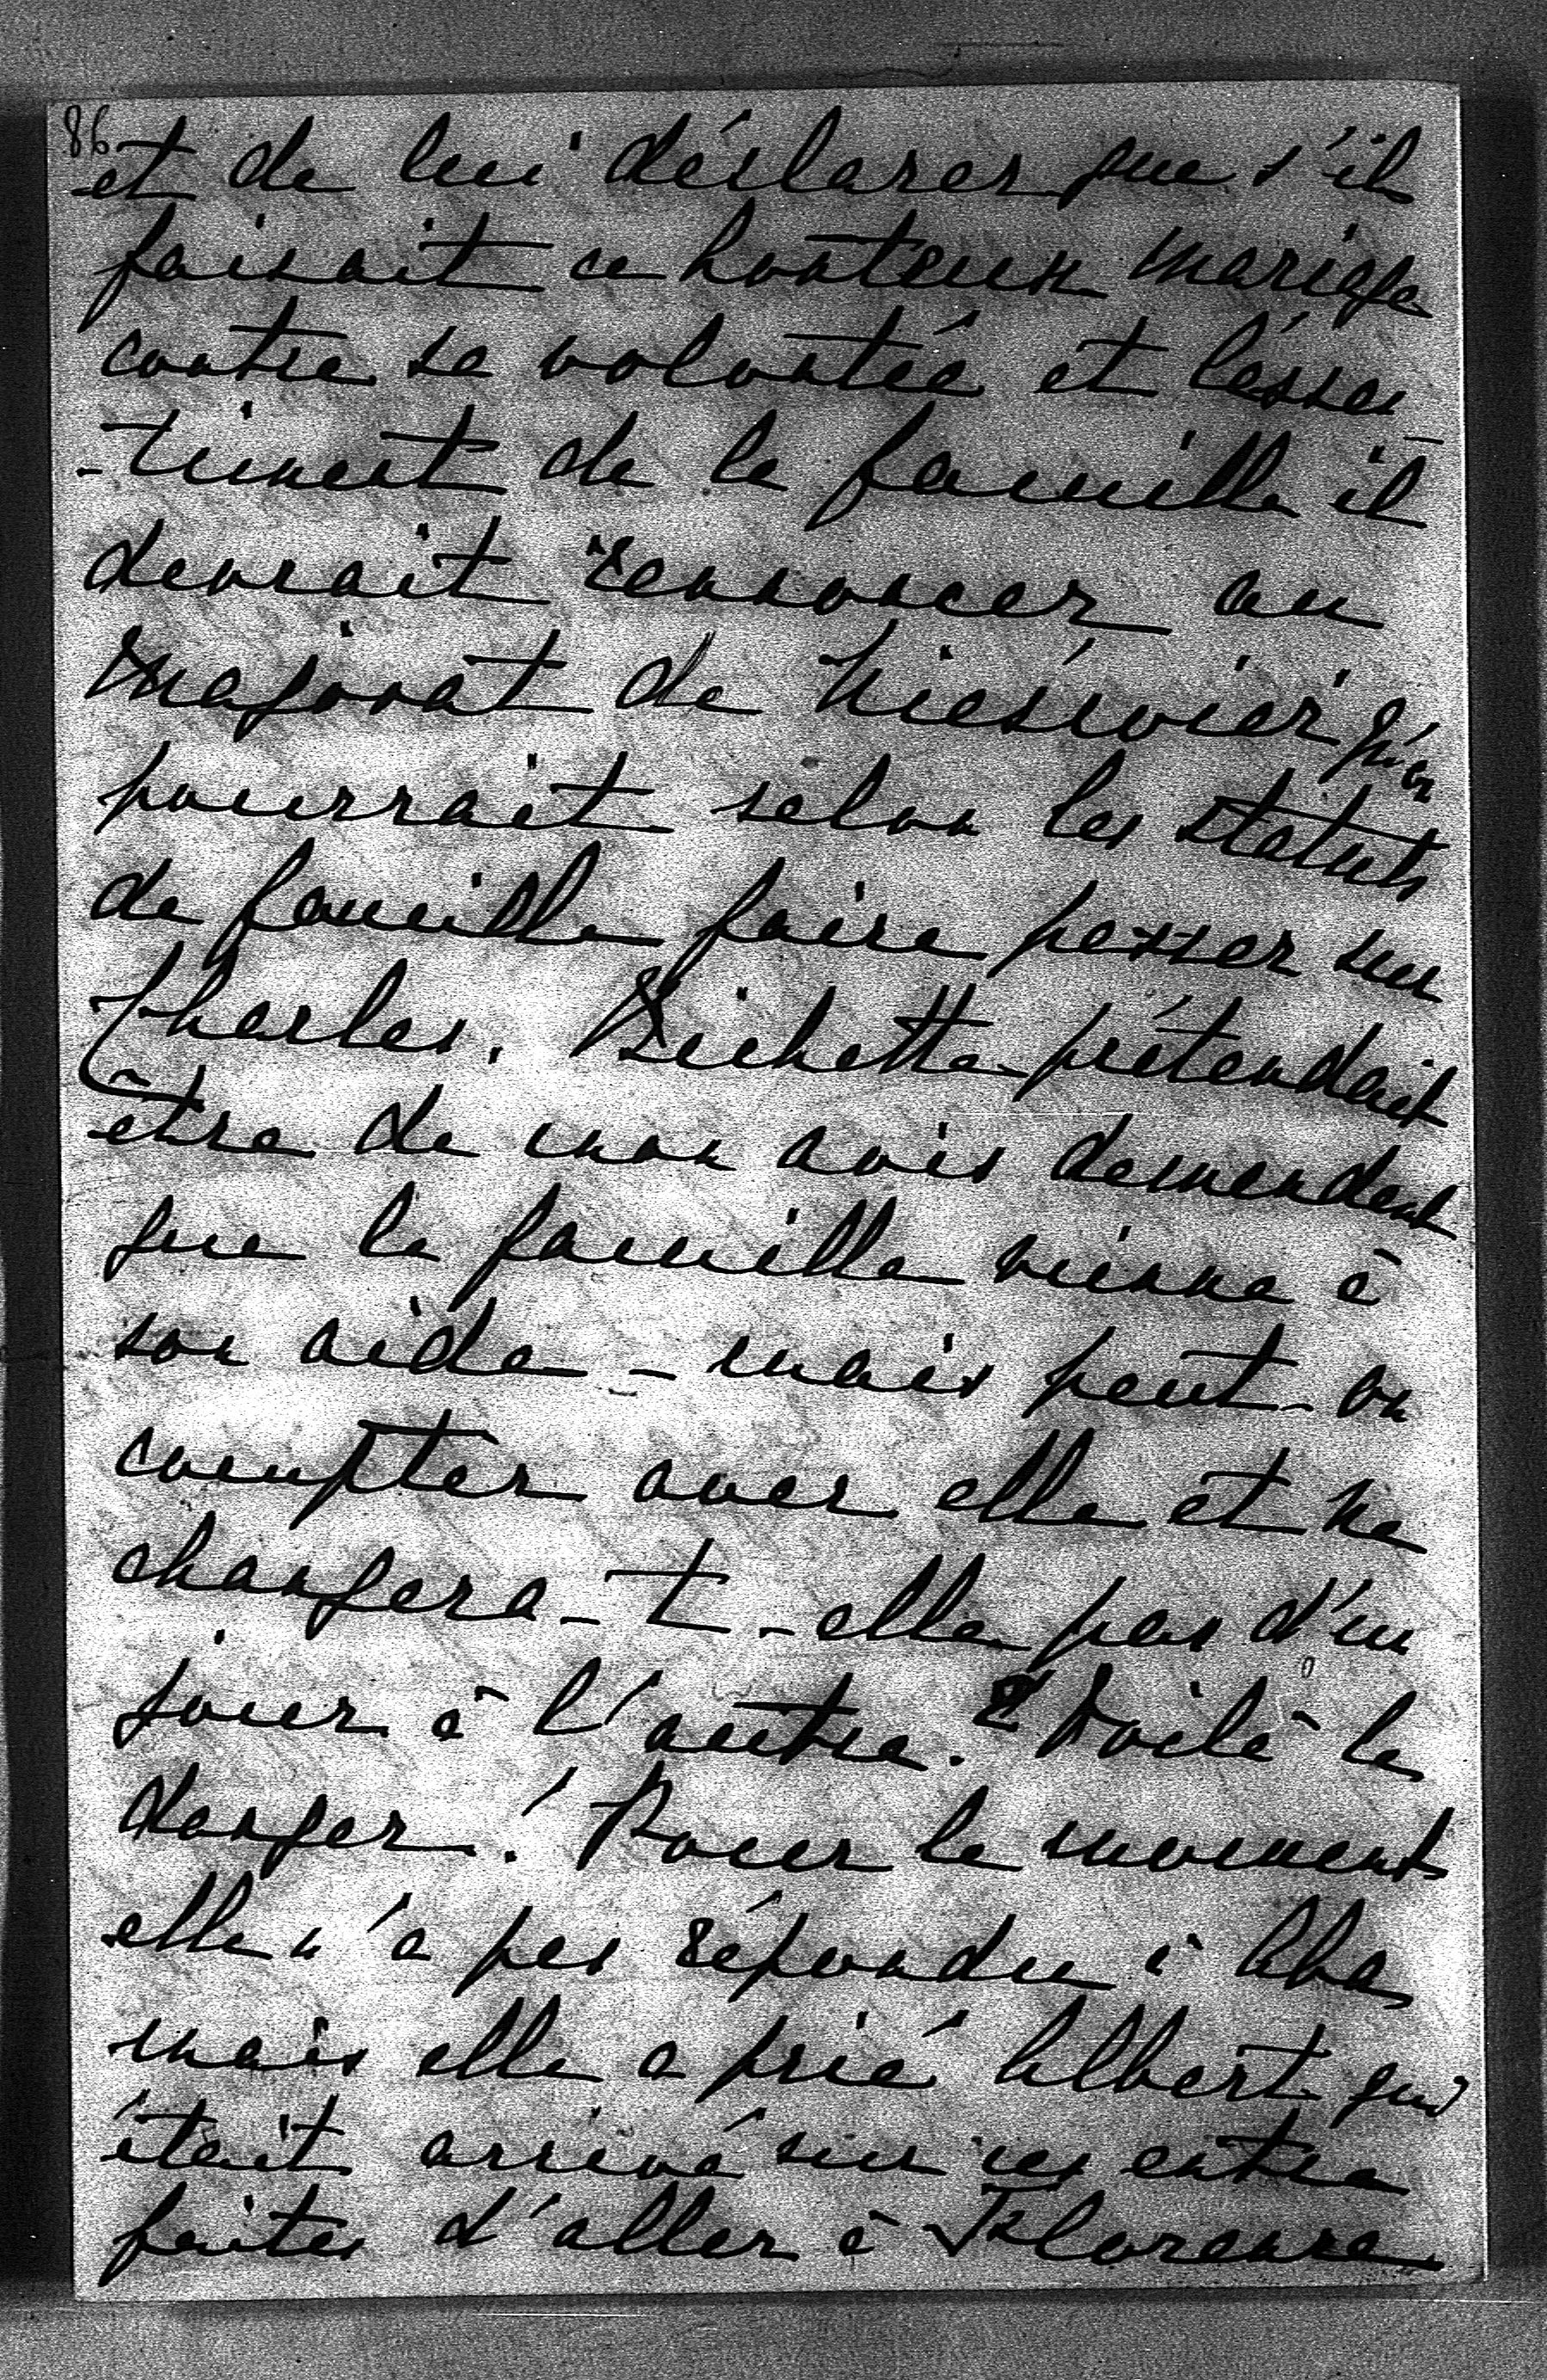 86
et de lui déclarer que s'il
faisait ce honteux mariage
contre sa volontée et l'assen
-timent de la famille il
devrait renoncer au
majorat de Niéswież qu'on
pourrait selon les statuts
de famille faire passer sur
Charles. Bichette prétendait
être de mon avis demandant
que la famille vienne à
son aide - mais peut-on
compter avec elle et ne
changera-t-elle pas d'un
jour à l'autre. ? Voilà le
danger! Pour le moment
elle n'a pas répondu à Aba
mais elle a prié Albert qui
était arrivé sur ces entre
faites d'aller à Florence